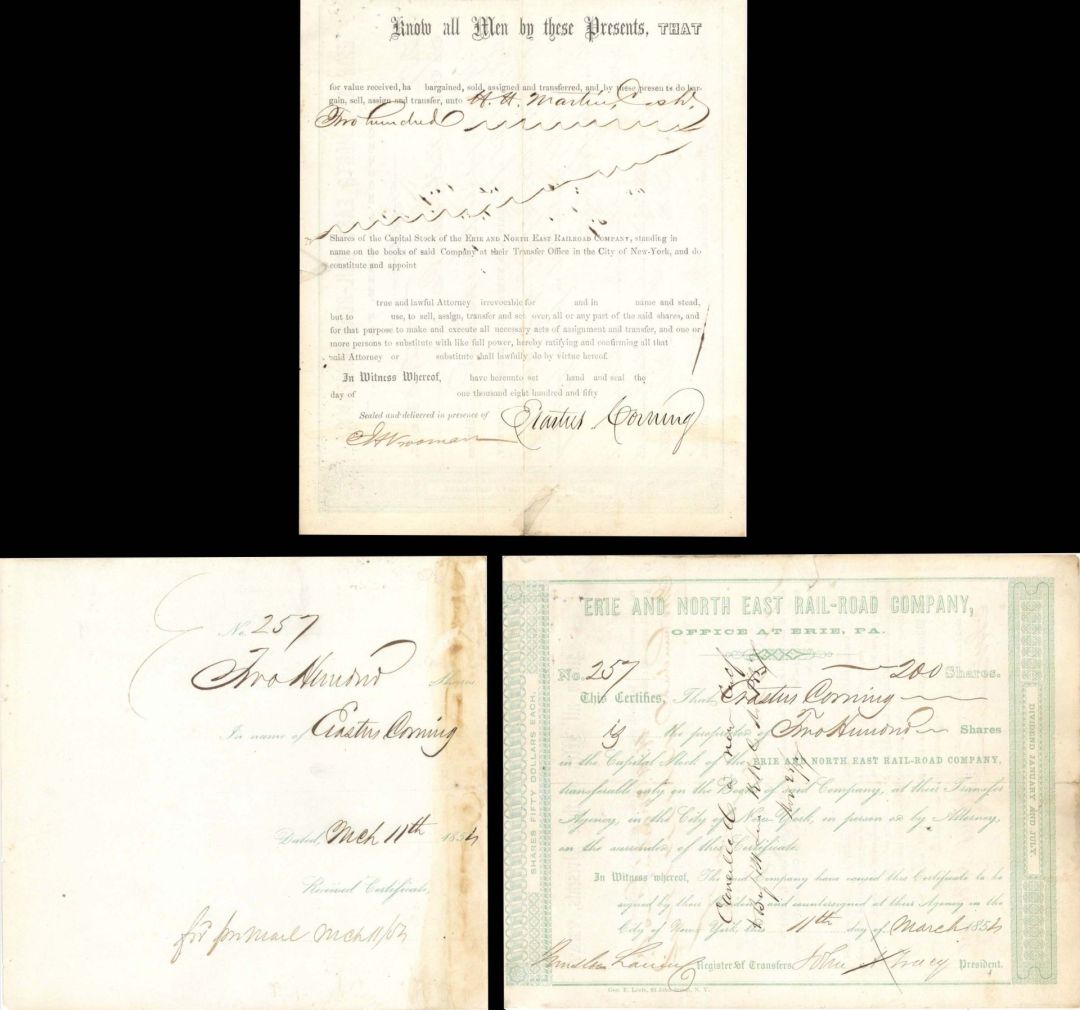 Know all Men by these Presents, THAT
for value received, ha bargained, sold, assigned and transferred, and by these presents do bar-
gain, sell, assign and transfer, unto H. H. Martin, Cash.
Two hundred
Shares of the Capital Stock of the ERIE AND NORTH EAST RAILROAD COMPANY, standing in
name on the books of said Company at their Transfer Office in the City of New-York, and do
constitute and appoint
true and lawful Attorney irrevocable for and in name and stead,
but to use, to sell, assign, transfer and set over, all or any part of the said shares, and
for that purpose to make and execute all necessary acts of assignment and transfer, and one or
more persons to substitute with like full power, hereby ratifying and confirming all that
said Attorney or substitute shall lawfully do by virtue hereof.
In Witness Whereof, have hereunto set hand and seal the
day of one thousand eight hundred and fifty
Sealed and delivered in presence of Erastus Corning
Vrooman
No. 257
Two Hundred Shares
In name of Erastus Corning
Dated, Mch 11th 185
Received Certificate,
for mail Mch 11/
ERIE AND NORTH EAST RAIL-ROAD COMPANY,
OFFICE AT ERIE, PA.
No. 257 200 Shares.
This Certifies, That Erastus Corning
is the proprietor of Two Hundred Shares
in the Capital Stock of the ERIE AND NORTH EAST RAIL-ROAD COMPANY,
transferable only on the Books of said Company, at their Transfer
Agency, in the City of New York, in person or by Attorney,
on the surrender of this Certificate.
In Witness whereof, The said Company have caused this Certificate to be
signed by their President and countersigned at their Agency in the
City of New York, this 11th day of March 185
Register of Transfers John A Tracy President.
Geo. E. Leefe, John Street, N. Y.
SHARES FIFTY DOLLARS EACH.
DIVIDEND JANUARY AND JULY.
Cancelled & new